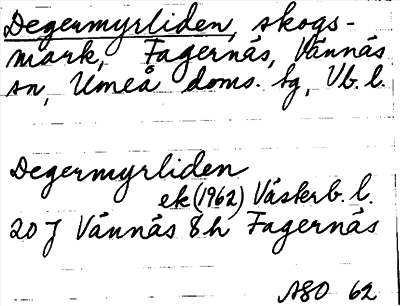 Degermyrliden, skogs-
mark, Fagernäs, Vännäs
sn, Umeå doms. lg, Vb. l.
Degermyrliden
ek (1962) Västerb. l.
20 J Vännäs 8h Fagernäs
ASO 62